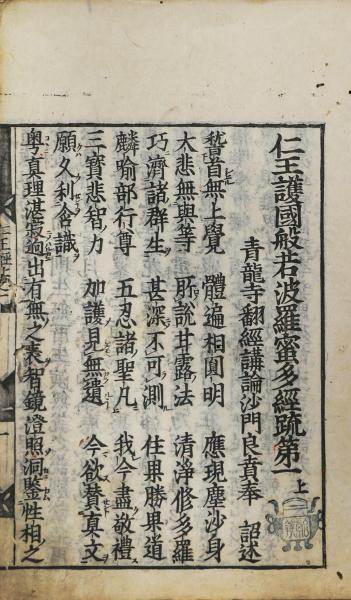 仁王護國般若波羅蜜多經疏第一上
青龍寺翻經講論沙門良賁奉 詔述
稽首無上覺 體遍相圓明 應現塵沙身
大悲無與等 所說甘露法 清淨修多羅
巧濟諸群生 甚深不可測 住果勝果道
麟喻部行尊 五忍諸聖凡 我今盡敬禮
三寶悲智力 加護見無遺 今欲賛真文
願久利含識
粵真理湛寂逈出有無之表智鏡澄照洞鑒性相之